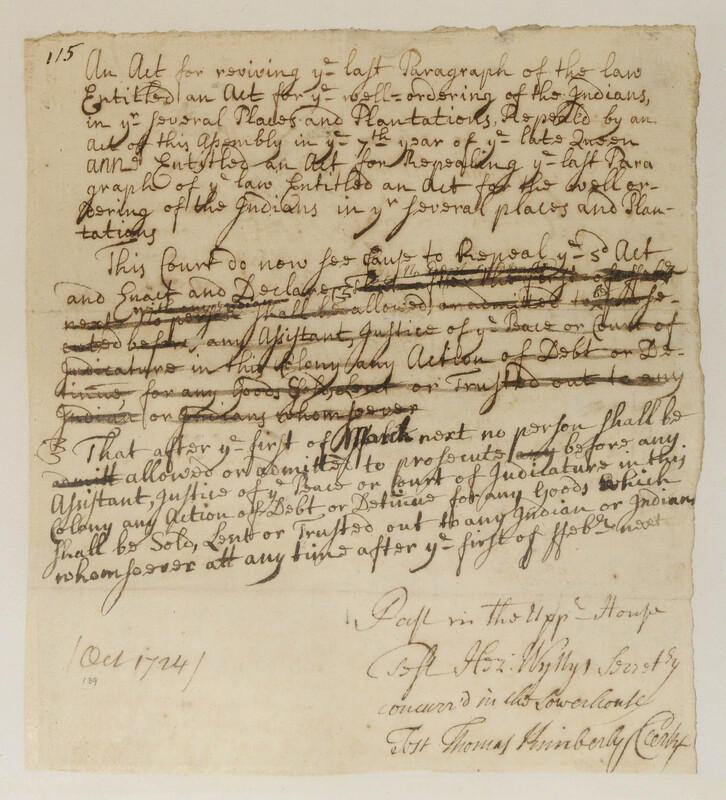 115
An Act for reviving yᵉ last Paragraph of the law
Entitled an Act for yᵉ well=ordering of the Indians,
in yʳ several Places and Plantations, Repeald by an
act of this Assembly in yᵉ 7th year of yᵉ late Queen
anne Entitled an Act for Repealing yᵉ last Para
graph of yᵉ law Entitled an Act for the well or-
dering of the Indians in yʳ several places and Plan-
tations
This Court do now see Cause to Repeal yᵉ sd Act
and Enact and Declare
next no person shall be allowed or admitted to
before, any Assistant, Justice of yᵉ Peace or Court of
Judicature in this Colony any Action of Debt or De-
tinue for any Goods or Trusted out to any
Indian or Indians whomsoever
That after yᵉ first of March next no person shall be
admitt allowed or admitted to prosecute any before any
Assistant, Justice of yᵉ Peace or Court of Judicature in this
Colony any Action of Debt or Detinue for any Goods which
shall be Sold, Lent or Trusted out to any Indian or Indians
whomsoever att any time after yᵉ first of ffebʳ next
Past in the Uppʳ House
Test Hez: Wyllys Secretʳy
concurr'd in the Lower house
Test Thomas Kimberly Clerk
/Oct 1724/
189